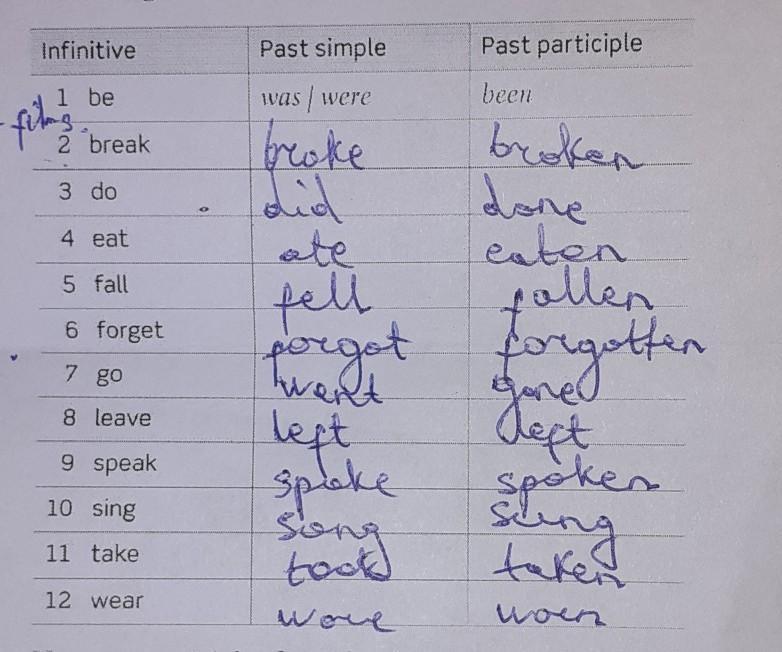 Infinitive Past simple Past participle
1 be was / were been
- films.
2 break broke broken
3 do did done
4 eat ate eaten
5 fall fell fallen
6 forget forgot forgotten
7 go went gone
8 leave left left
9 speak spoke spoken
10 sing sang sung
11 take took taken
12 wear wore worn